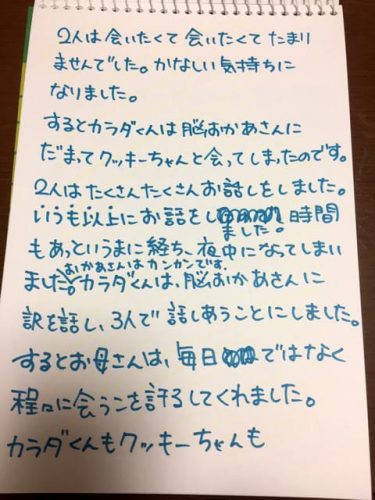 2人は会いたくて会いたくてたまり
ませんでした。かなしい気持ちに
なりました。
するとカラダくんは脳おかあさんに
だまってクッキーちゃんと会ってしまったのです。
2人はたくさんたくさんお話しをしました。
いつも以上にお話をし 時間
ました。
もあっというまに経ち、夜中になってしまい
おかあさんはカンカンです。
ました。カラダくんは、脳おかあさんに
訳を話し、3人で話しあうことにしました。
するとお母さんは、毎日 ではなく
程々に会うこを許るしてくれました。
カラダくんもクッキーちゃんも